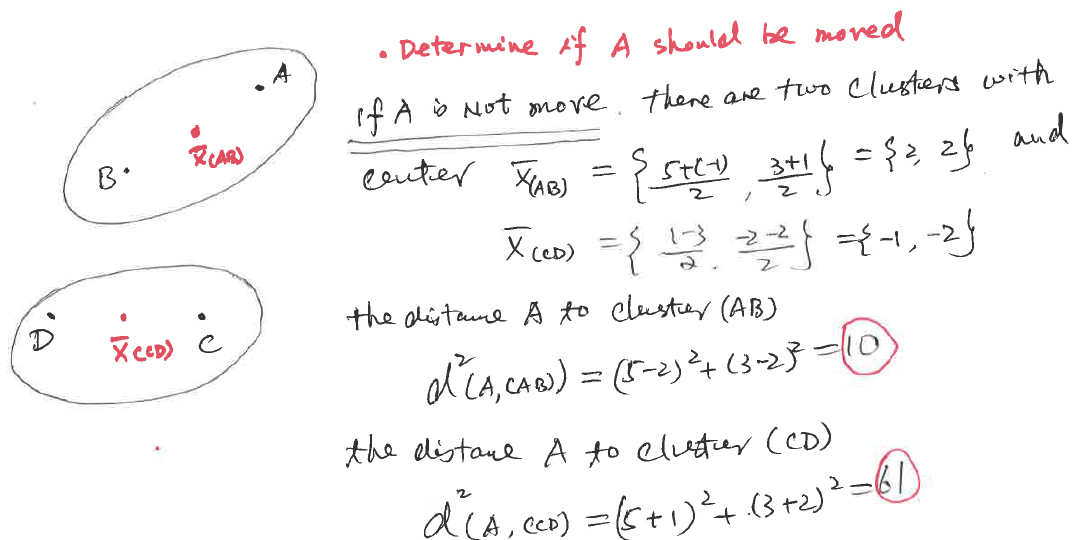 • Determine if A should be moved
if A is Not move. there are two Clusters with
center X̄(AB) = { 5+(-1)/2 , 3+1/2 } = {2, 2} and
X̄(CD) = { 1-3/2 . -2-2/2 } = {-1, -2}
the distance A to cluster (AB)
d²(A,(AB)) = (5-2)² + (3-2)² = 10
the distance A to cluster (CD)
d²(A,(CD) = (5+1)² + (3+2)² = 61
A
X̄(AB)
B
D
X̄(CD)
C